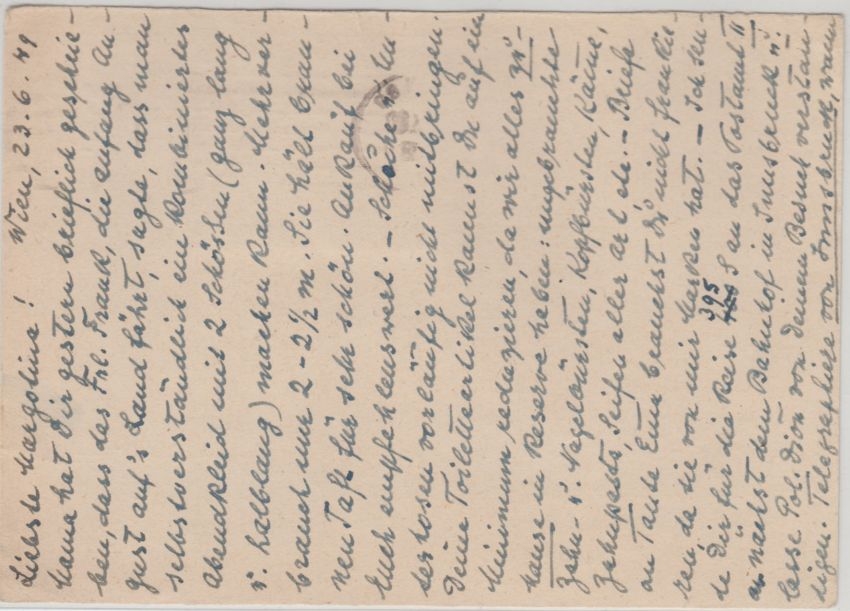 Wien, 23. 6. 49
Liebste Margolina!
Mama hat Dir gestern brieflich geschrie-
ben, dass das Frl. Frank, die anfang Au-
gust auf's Land fährt, sagte, dass man
selbstverständlich ein kombiniertes
Abendkleid mit 2 Schössen (ganz lang
u. halblang) machen kann. Mehrver-
brauch nur 2-2½ m. Sie hält brau-
nen Taft für sehr schön. Ankauf bei
Euch empfehlenswert. - Schuhe u. Un-
terhosen vorläufig nicht mitbringen.
Deine Toiletteartikel kannst Du auf ein
Minimum reduzieren, da wir alles zu-
hause in Reserve haben: ungebrauchte
Zahn- u. Nagelbürsten, Kopfbürsten, Kämme,
Zahnpasta, Seifen aller Art etc. - Briefe
an Tante Emma brauchst Du nicht frankie-
ren, da sie von mir Marken hat. - Ich sen-
de Dir für die Reise 395 S an das Postamt II
nächst dem Bahnhof in Innsbruck u.
lasse Pol. Dion von Deinem Besuch verstän-
digen. Telegraphiere von Innsbruck, wann